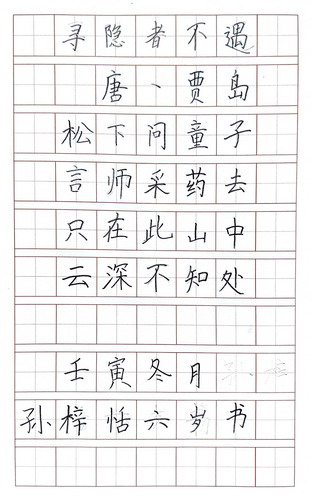 寻隐者不遇
唐、贾岛
松下问童子
言师采药去
只在此山中
云深不知处
壬寅冬月
孙梓恬六岁书